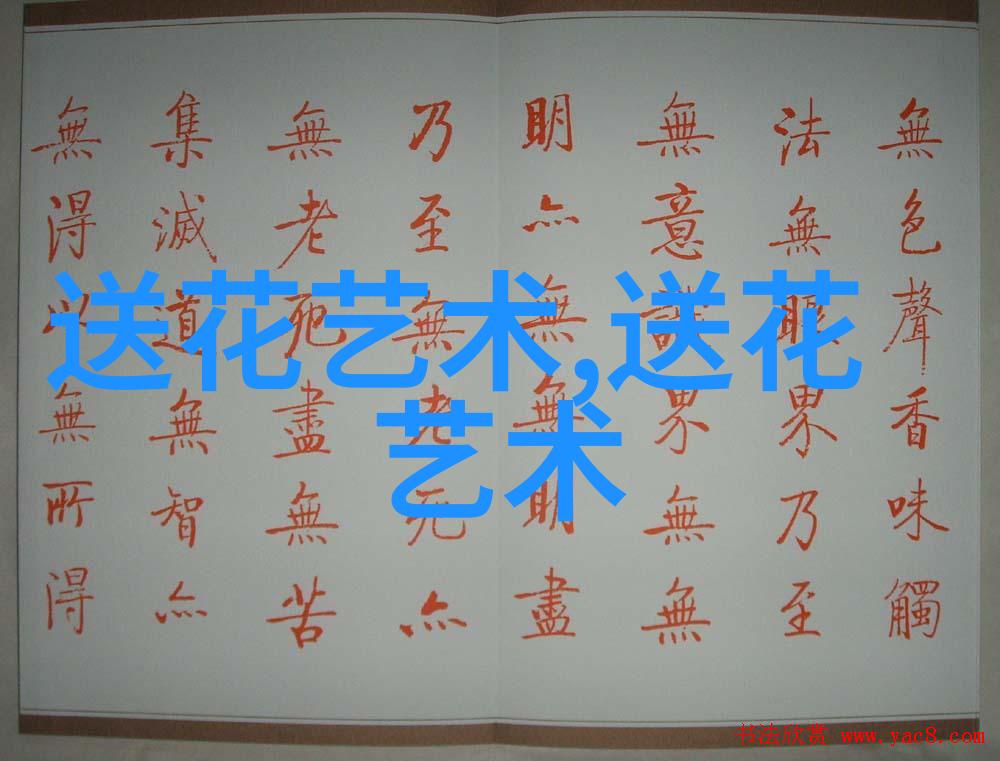 無色聲香味觸
法無眼界乃至
無意識界無無
明亦無無明盡
乃至無老死亦
無老死盡無苦
集滅道無智亦
無得以無所得
送花艺术,送花
艺术
书法欣赏 www.yac8.com